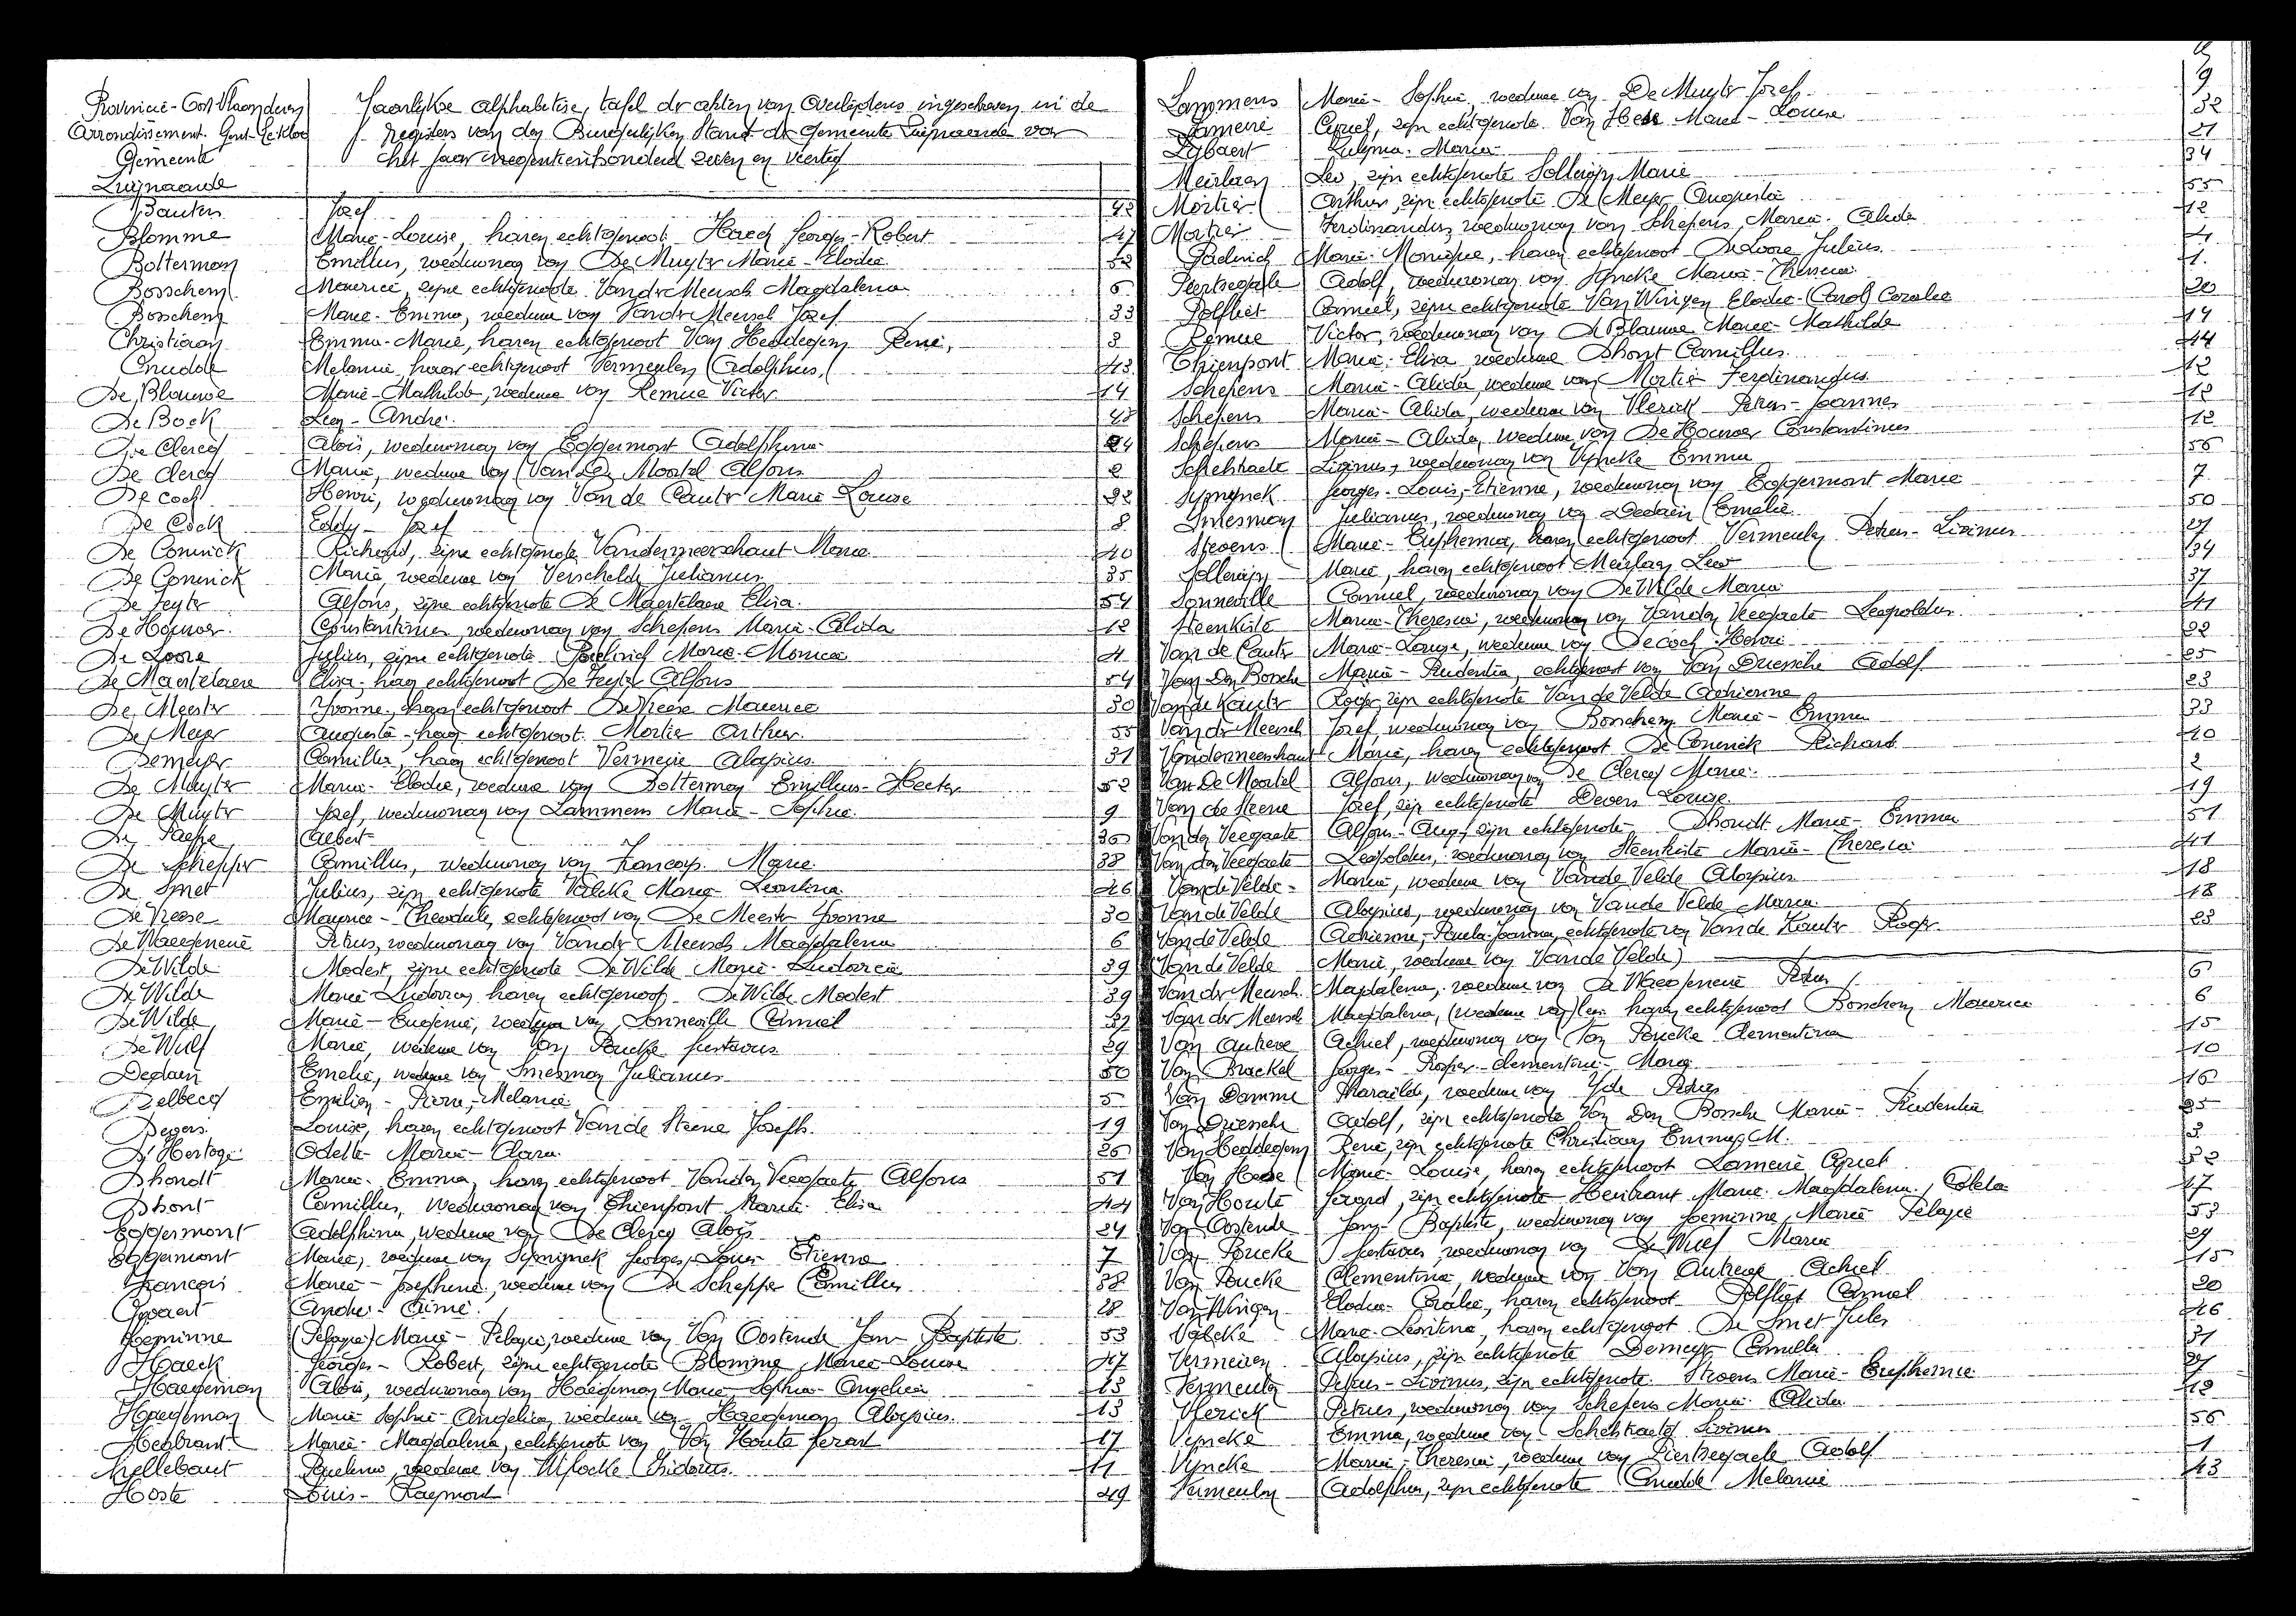 Provincie - Oost Vlaanderen
Arrondissement Gent-Eekloo
Gemeente
Zwijnaarde
Jaarlijkse alphabetise, tafel der akten van overlijdens ingeschreven in de
registers van den Burgerlijken Stand der gemeente Zwijnaarde voor
het jaar negentienhonderd zeven en veertig
Bauters Jozef 42
Blomme Marie-Louise, haren echtgenoot Haeck Georges-Robert 47
Bolterman Emillus, weduwnaar van De Muyter Marie-Elodie 52
Bosschem Maurice, zijne echtgenote Vander Meersch Magdalena 6
Bosschem Marie-Emma, weduwe van Vander Meersch Jozef 33
Christiaen Emma-Marie, haren echtgenoot Van Heddegem René, 3
Cnudde Melanie, haar echtgenoot Vermeulen Adolphus, 43
De Blauwe Marie-Mathilde, weduwe van Remue Victor 14
De Bock Leon-André 48
De Clercq Aloïs, weduwnaar van Eggermont Adolphina 24
De Clercq Marie, weduwe van Van De Moortel Alfons 2
De Cock Henri, weduwnaar van Van de Cauter Marie Louise 22
De Cock Eddy-Jozef 8
De Coninck Richard, zijne echtgenote Vandermeerschaut Marie 40
De Coninck Marie, weduwe van Verschelde Julianus 35
De Feyter Alfons, zijne echtgenote De Maertelaere Elisa 54
De Houwer Constantinus, weduwnaar van Schepens Marie-Alida 12
De Loore Julius, zijne echtgenote Marie-Monica 4
De Maertelaere Elisa, haar echtgenoot De Feyter Alfons 54
De Meester Yvonne, haar echtgenoot De Vreese Maurice 30
De Meyer Augusta, haar echtgenoot Mortier Arthur 55
Demeyer Camilla, haar echtgenoot Vermeire Aloysius 31
De Muyter Marie-Elodie, weduwe van Bolterman Emillus-Hector 52
De Muyter Jozef, weduwnaar van Lammens Marie-Sophie 9
De Paepe Albert 36
De Schepper Camillus, weduwnaar van Francois Marie 38
De Smet Julius, zijn echtgenote Valcke Marie-Leontina 46
De Vreese Maurice-Theodule, echtgenoot van De Meester Yvonne 30
De Waegeneire Petrus, weduwnaar van Vander Meersch Magdalena 6
De Wilde Modest, zijne echtgenote De Wilde Marie-Ludovica 39
De Wilde Marie-Ludovica, haren echtgenoot De Wilde Modest 39
De Wilde Marie-Eugenie, weduwe van Sonneville Camiel 37
De Wulf Marie, weduwe van Van Poucke Gustavus 29
Deplain Emelie, weduwe van Smesman Julianus 50
Delbecq Emilien-Pierre-Melanie 5
Devers Louise, haren echtgenoot Van de Steene Joseph 19
D'Hertoge Odette Marie-Clara 26
Dhondt Marie-Emma, haren echtgenoot Vanden Veegaete Alfons 51
Dhont Camillus, weduwnaar van Thienpont Marie Elisa 44
Eggermont Adolphina, weduwe van De Clercq Aloïs 24
Eggermont Marie, weduwe van Georges-Louis Etienne 7
Francois Marie-Josephine, weduwe van De Schepper Camillus 38
Govaert André-Aimé 28
Geminne (Pelagie) Marie-Pelagie, weduwe van Van Oostende Jan-Baptiste 53
Haeck Georges-Robert, zijne echtgenote Blomme Marie-Louise 47
Haegeman Aloïs, weduwnaar van Haegeman Marie-Sophie-Angelica 13
Haegeman Marie Sophie-Angelica, weduwe van Haegeman Aloysius 13
Herbrant Marie-Magdalena, echtgenote van Van Houte Gerard 17
Hellebaut weduwe van 11
Hoste Louis-Raymond 49
Lammens Marie-Sophie, weduwe van De Muyter Jozef 9
Lameire Cyriel, zijn echtgenote Van Hese Marie-Louise 32
Lybaert Marie 21
Meirlaen Leo, zijn echtgenote Sollewijn Marie 34
Mortier Arthur, zijn echtgenote De Meyer Augusta 55
Mortier Ferdinandus, weduwnaar van Schepens Marie-Alida 12
Marie-Monique, haren echtgenoot De Loore Julius 4
Peirtsegaele Adolf, weduwnaar van Vyncke Marie-Theresia 1
Polfliet Camiel, zijn echtgenote Van Wingen Elodie-(Carol) Coralie 20
Remue Victor, weduwnaar van De Blauwe Marie-Mathilde 14
Thienpont Marie-Elisa, weduwe Dhont Camillus 44
Schepens Marie-Alida, weduwe van Mortier Ferdinandus 12
Schepens Marie-Alida, weduwe van Vlerick Petrus-Joannes 12
Schepens Marie-Alida, weduwe van De Houwer Constantinus 12
Schelstraete Livinus, weduwnaar van Vyncke Emma 56
Georges-Louis-Etienne, weduwnaar van Eggermont Marie 7
Smesman Julianus, weduwnaar van Deplain Emelie 50
Stevens Marie-Euphemia, haren echtgenoot Vermeulen Petrus-Livinus 27
Sollewijn Marie, haren echtgenoot Meirlaen Leo 34
Sonneville Camiel, weduwnaar van De Wilde Marie 37
Steenkiste Marie-Theresia, weduwnaar van Vanden Veegaete Leopoldus 41
Van de Cauter Marie-Louise, weduwe van De cock Henri 22
Van Den Bossche Marie-Prudentia, echtgenoot van Van Driessche Adolf 25
Van de Kauter Roger, zijn echtgenote Van de Velde Adrienne 23
Van der Meersch Jozef, weduwnaar van Bosschem Marie-Emma 33
Vandermeerschaut Marie, haren echtgenoot De Coninck Richard 40
Van De Moortel Alfons, weduwnaar van De Clercq Marie 2
Van de Steene Jozef, zijn echtgenote Devers Louise 19
Van den Veegaete Alfons-Aug, zijn echtgenote Dhondt Marie-Emma 51
Van den Veegaete Leopoldus, weduwnaar van Steenkiste Marie-Theresia 41
Van de Velde Marie, weduwe van Van de Velde Aloysius 18
Van de Velde Aloysius, weduwnaar van Van de Velde Marie 18
Van de Velde Adrienne-Paula-Joanna, echtgenote van Van de Kauter Roger 23
Van de Velde (Marie, weduwe van Van de Velde)
Van der Meersch Magdalena, weduwe van De Waegeneire Petrus 6
Van der Meersch Magdalena, (weduwe van) haren echtgenoot Bosschem Maurice 6
Van Autreve Achiel, weduwnaar van Van Poucke Clementina 15
Van Brackel Georges-Prosper-Clementine-Marie 10
Van Damme Pharaïlde, weduwe van Yde Petrus 16
Van Driessche Adolf, zijn echtgenote Van Den Bossche Marie-Prudentia 25
Van Heddegem René, zijn echtgenote Christiaen Emma M. 3
Van Hese Marie-Louise, haren echtgenoot Lameire Cyriel 32
Van Houte Gerard, zijn echtgenote Herbrant Marie Magdalena, Coleta 17
Van Oostende Jan-Baptiste, weduwnaar van Geminne Marie Pelagie 53
Van Poucke Gustavus, weduwnaar van De Wulf Marie 29
Van Poucke Clementina, weduwe van Van Autreve Achiel 15
Van Wingen Elodie-Coralie, haren echtgenoot Polfliet Camiel 20
Valcke Marie-Leontina, haren echtgenoot De Smet Jules 46
Vermeiren Aloysius, zijn echtgenote Demeyer Camilla 31
Vermeulen Petrus-Livinus, zijn echtgenote Stevens Marie-Euphemie 27
Vlerick Petrus, weduwnaar van Schepens Marie Alida 12
Vyncke Emma, weduwe van Schelstraete Livinus 56
Vyncke Marie-Theresia, weduwe van Peirtsegaele Adolf 1
Vermeulen Adolphus, zijn echtgenote Cnudde Melanie 43